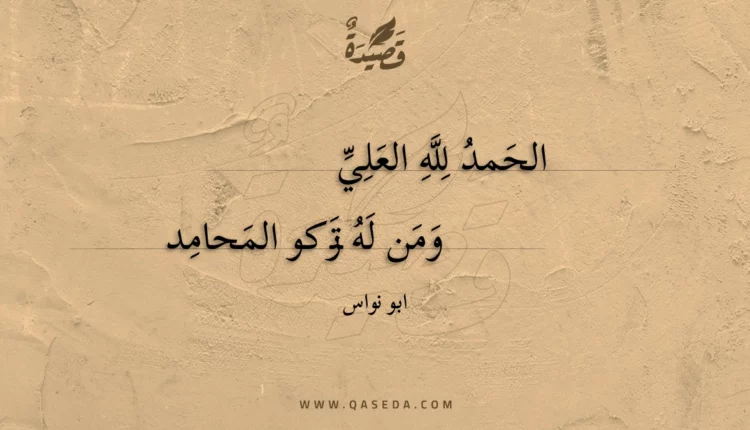 قَصِيْدَةٌ
الحَمدُ لِلَّهِ العَلِيِّ
وَمَن لَهُ تَزكو المَحامِد
ابو نواس
WWW.QASEDA.COM